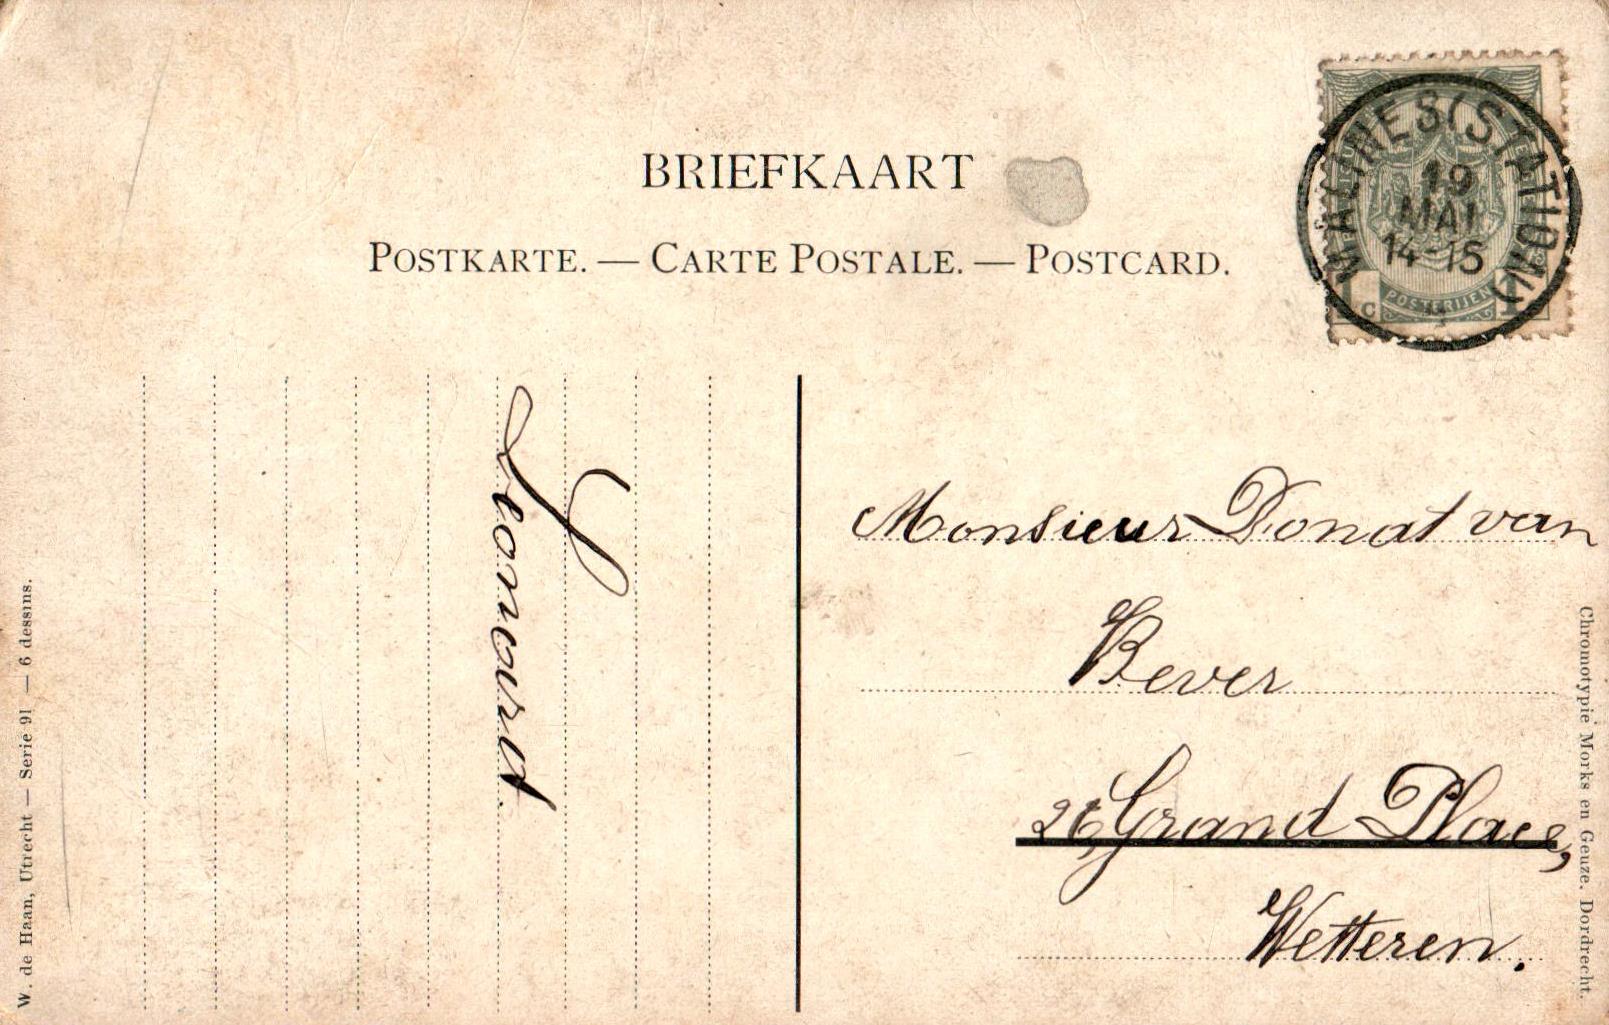 BRIEFKAART
POSTKARTE. — CARTE POSTALE. — POSTCARD.
MALINES (STATION)
19
MAI
14-15
POSTERIJEN
1 C 1
Monsieur Donat van
Bever
26, Grand Place,
Wetteren.
W. de Haan, Utrecht — Serie 91 — 6 dessins.
Chromotypie Morks en Geuze. Dordrecht.